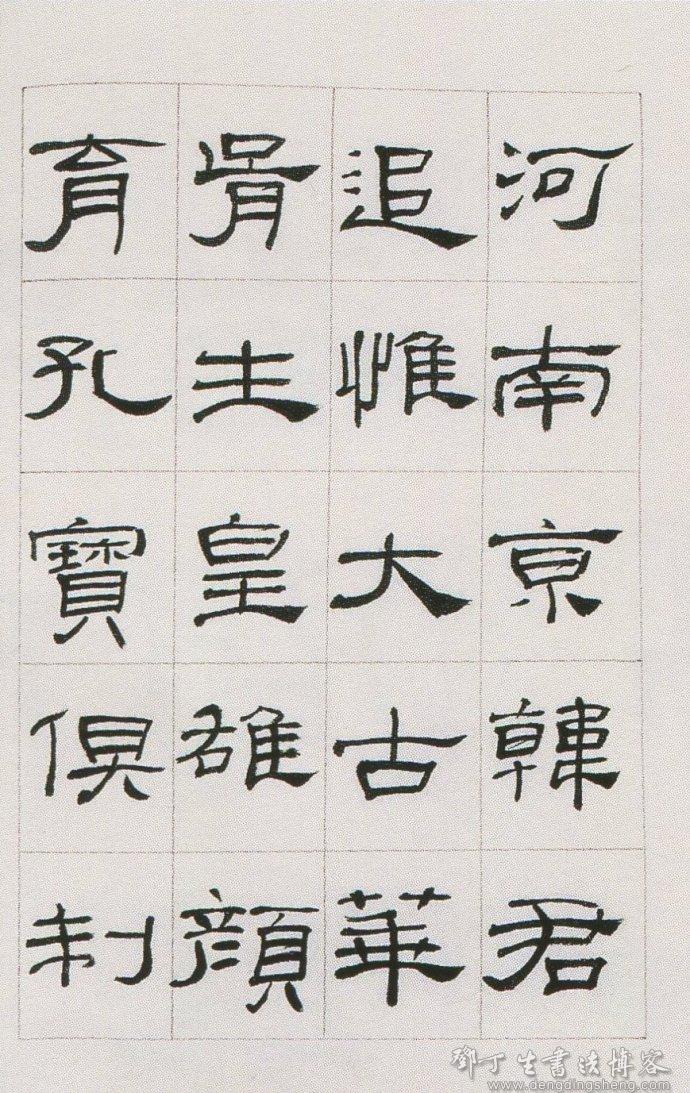 河南京韓君
追惟大古華
胥生皇雄顏
育孔寶俱制
鄧丁生書法博客
www.dengdingsheng.com